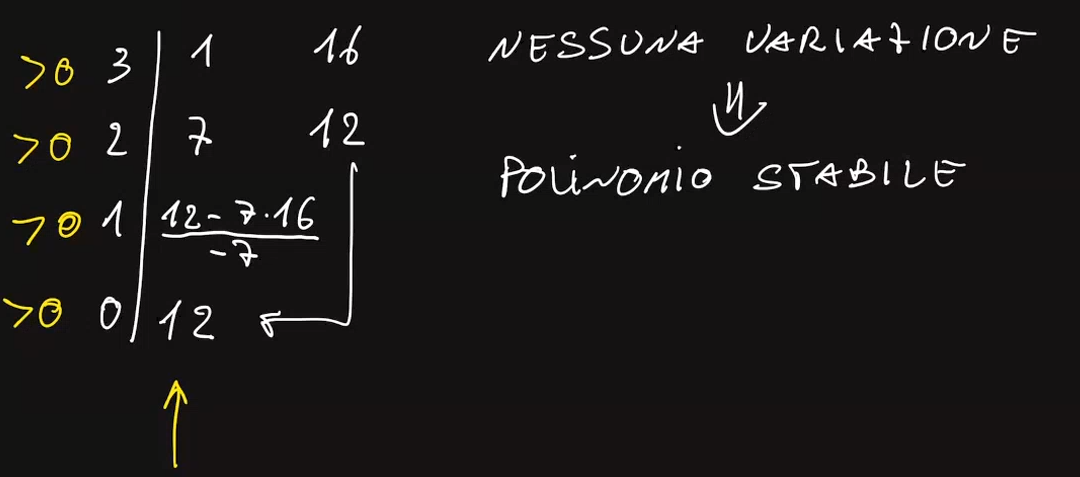 >0 3 | 1 16
>0 2 | 7 12
>0 1 | 12-7·16
-7
>0 0 | 12
NESSUNA VARIAZIONE
⇓
POLINOMIO STABILE